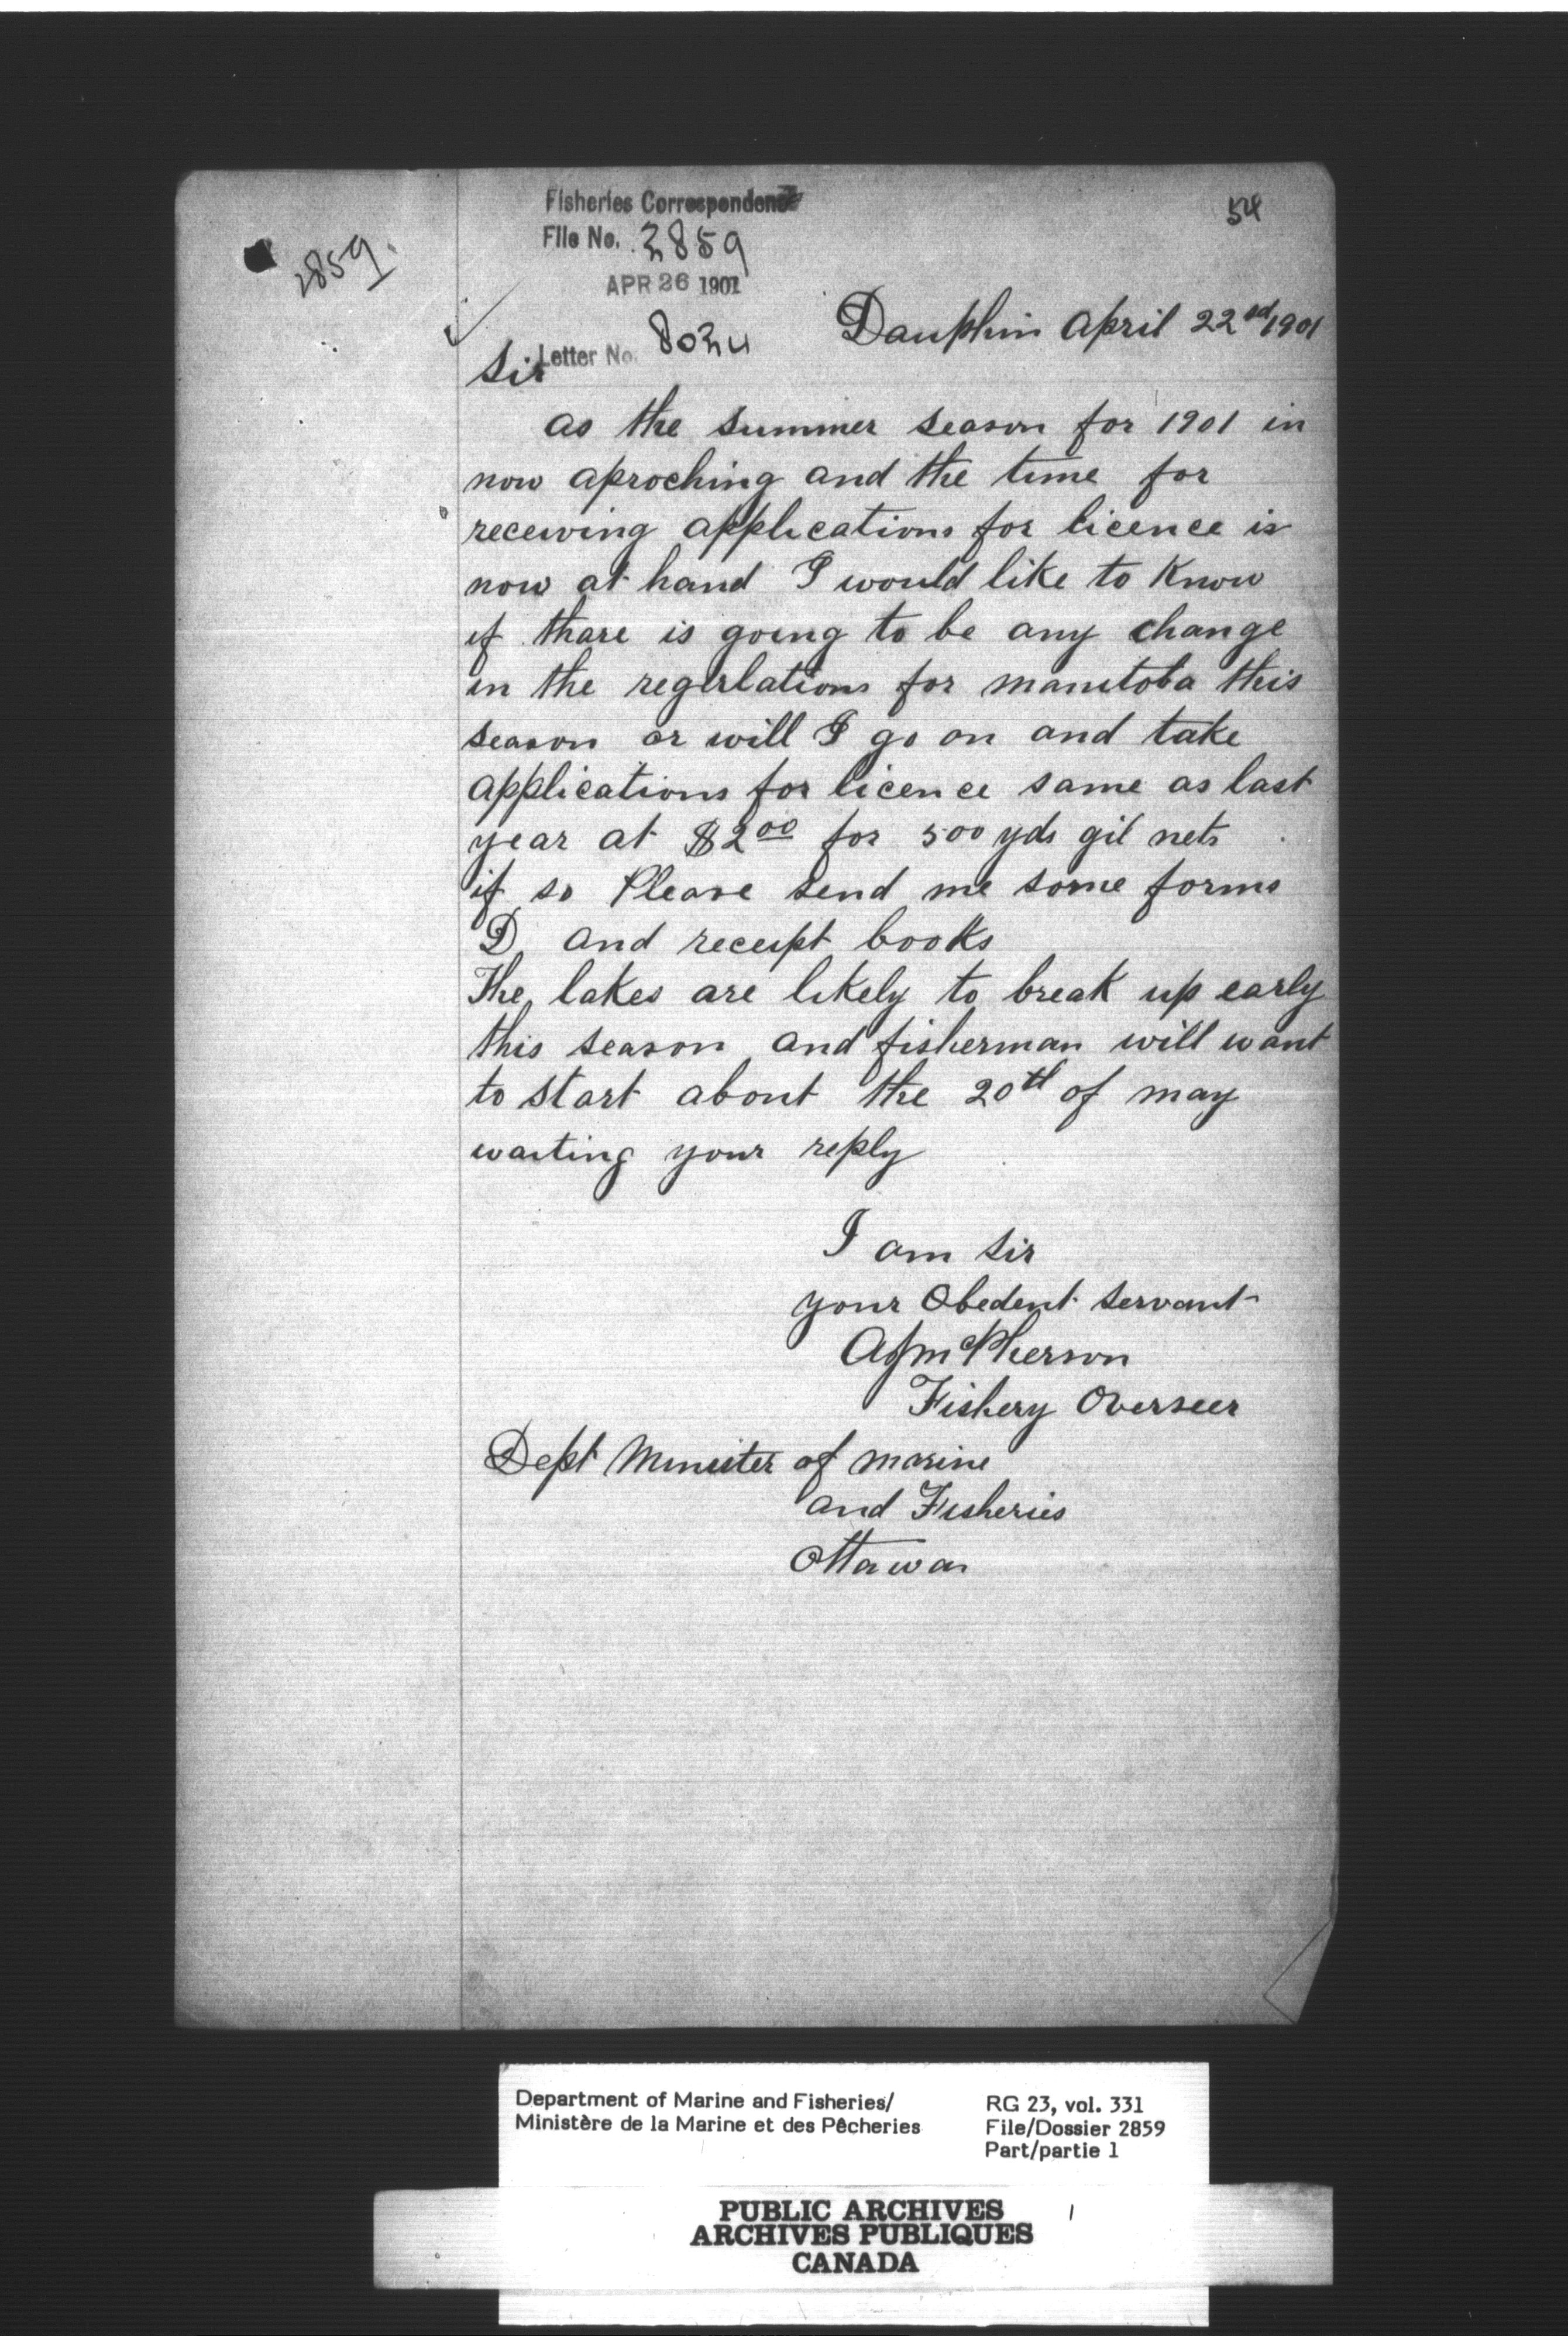 54
Fisheries Correspondence
File No. 2859
2859.
APR 26 1901
Dauphin April 22nd 1901
Letter No. 8034
Sir
as the summer season for 1901 in
now aproching and the time for
receiving applications for licence is
now at hand I would like to know
if thare is going to be any change
in the regurlations for manitoba this
season or will I go on and take
applications for licence same as last
year at $2 00 for 500 yds gil nets
if so Please send me some forms
D and receipt books
The lakes are likely to break up early
this season and fisherman will want
to start about the 20th of may
waiting your reply
I am sir
your Obedent servant
A J McPherson
Fishery Overseer
Dept Minister of marine
and Fisheries
Ottawa
Department of Marine and Fisheries/
Ministère de la Marine et des Pêcheries
RG 23, vol. 331
File/Dossier 2859
Part/partie 1
PUBLIC ARCHIVES
ARCHIVES PUBLIQUES
CANADA